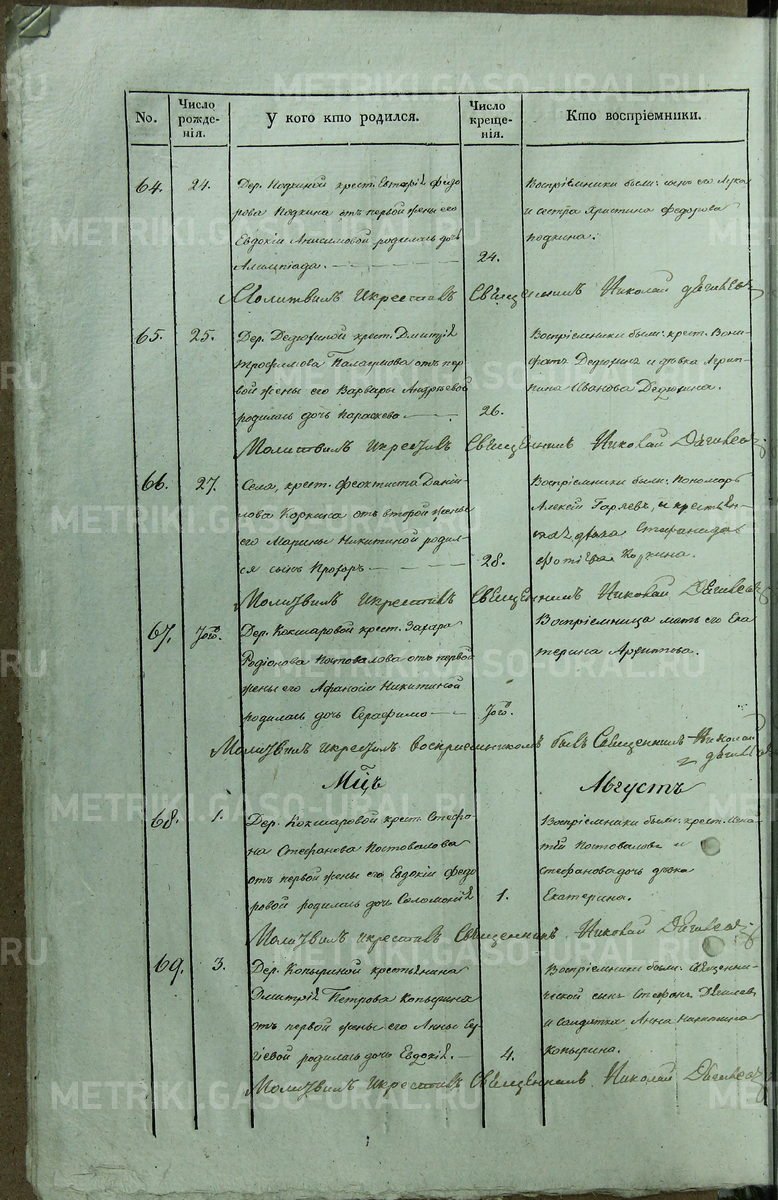 No.
Число рожде-нія.
У кого кто родился.
Число креще-нія.
Кто воспріемники.
64. 24.
Дер. Кодкиной крест. федо
рова Кодкина отъ первой жены его
Евдокіи Анисимовой родилась дочь
Алимпіада.
24.
Воспріемники были: сынъ его Лука
и сестра Христина федорова
Кодкина.
Молитвилъ Икрестилъ Священникъ Николай
65. 25.
Дер. Дедюхиной крест. Дмитрія
Трофимова отъ пер
вой жены его Варвары Андреевой
родилась дочь Параскева
26.
Воспріемники были: крест. Вони
фатъ Дедюхинъ и девка Агрип
пина Иванова Дедюхина.
Молитвилъ Икрестилъ Священникъ Николай
66. 27.
Села, крест. феоктиста Даніи
лова Коркина отъ второй жены
его Марины Никитиной родил
ся сынъ Прохоръ
28.
Воспріемники были: Пономарь
Алексей и крестьян
девка Стефанида
Коркина.
Молитвилъ Икрестилъ Священникъ Николай
67. 30го.
Дер. Кокшаровой крест. Захара
Родіонова Постовалова отъ первой
жены его Афанасіи Никитиной
родилась дочь Серафима
30го.
Воспріемница мать его Ека
терина
Молитвилъ Икрестилъ воспріемникомъ былъ Священникъ Николай
Мцъ Августъ
68. 1.
Дер. Кокшаровой крест. Стефа
на Стефанова Постовалова
отъ первой жены его Евдокіи федо
ровой родилась дочь Соломонія
1.
Воспріемники были: крест. Игна
тій Постоваловъ и
Стефанова дочь девка
Екатерина.
Молитвилъ Икрестилъ Священникъ Николай
69. 3.
Дер. Копыриной крестьянина
Дмитрія Петрова Копырина
отъ первой жены его Анны Сер
гіевой родилась дочь Евдокія.
4.
Воспріемники были: Священни
ческой сынъ Стефанъ
и солдатка Анна
Копырина.
Молитвилъ Икрестилъ Священникъ Николай
METRIKI.GASO-URAL.RU